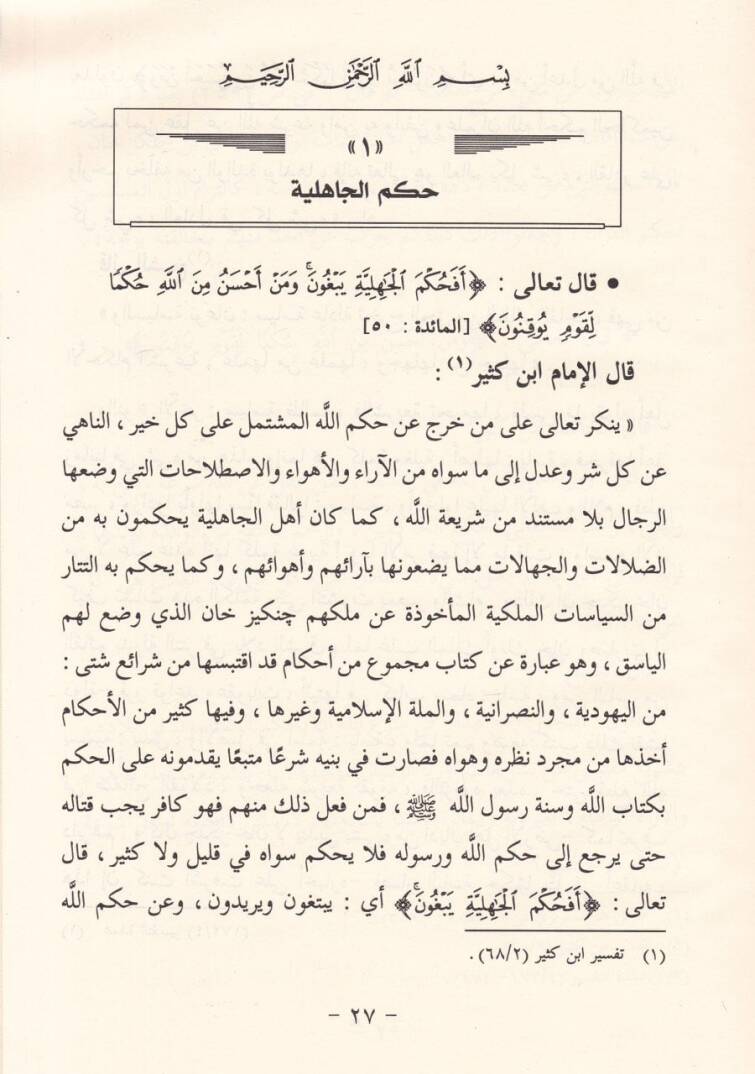 بِسْمِ اللَّهِ الرَّحْمَٰنِ الرَّحِيمِ
«١»
حكم الجاهلية
• قال تعالى : ﴿أَفَحُكْمَ الْجَاهِلِيَّةِ يَبْغُونَ ۚ وَمَنْ أَحْسَنُ مِنَ اللَّهِ حُكْمًا
لِّقَوْمٍ يُوقِنُونَ﴾ [المائدة : ٥٠]
قال الإمام ابن كثير(١) :
« ينكر تعالى على من خرج عن حكم اللَّه المشتمل على كل خير ، الناهي
عن كل شر وعدل إلى ما سواه من الآراء والأهواء والاصطلاحات التي وضعها
الرجال بلا مستند من شريعة اللَّه ، كما كان أهل الجاهلية يحكمون به من
الضلالات والجهالات مما يضعونها بآرائهم وأهوائهم ، وكما يحكم به التتار
من السياسات الملكية المأخوذة عن ملكهم چنكيز خان الذي وضع لهم
الياسق ، وهو عبارة عن كتاب مجموع من أحكام قد اقتبسها من شرائع شتى :
من اليهودية ، والنصرانية ، والملة الإسلامية وغيرها ، وفيها كثير من الأحكام
أخذها من مجرد نظره وهواه فصارت في بنيه شرعًا متبعًا يقدمونه على الحكم
بكتاب اللَّه وسنة رسول اللَّه ﷺ ، فمن فعل ذلك منهم فهو كافر يجب قتاله
حتى يرجع إلى حكم اللَّه ورسوله فلا يحكم سواه في قليل ولا كثير ، قال
تعالى : ﴿أَفَحُكْمَ الْجَاهِلِيَّةِ يَبْغُونَ ۚ﴾ أي : يبتغون ويريدون ، وعن حكم اللَّه
(١) تفسير ابن كثير (٦٨/٢) .
- ٢٧ -